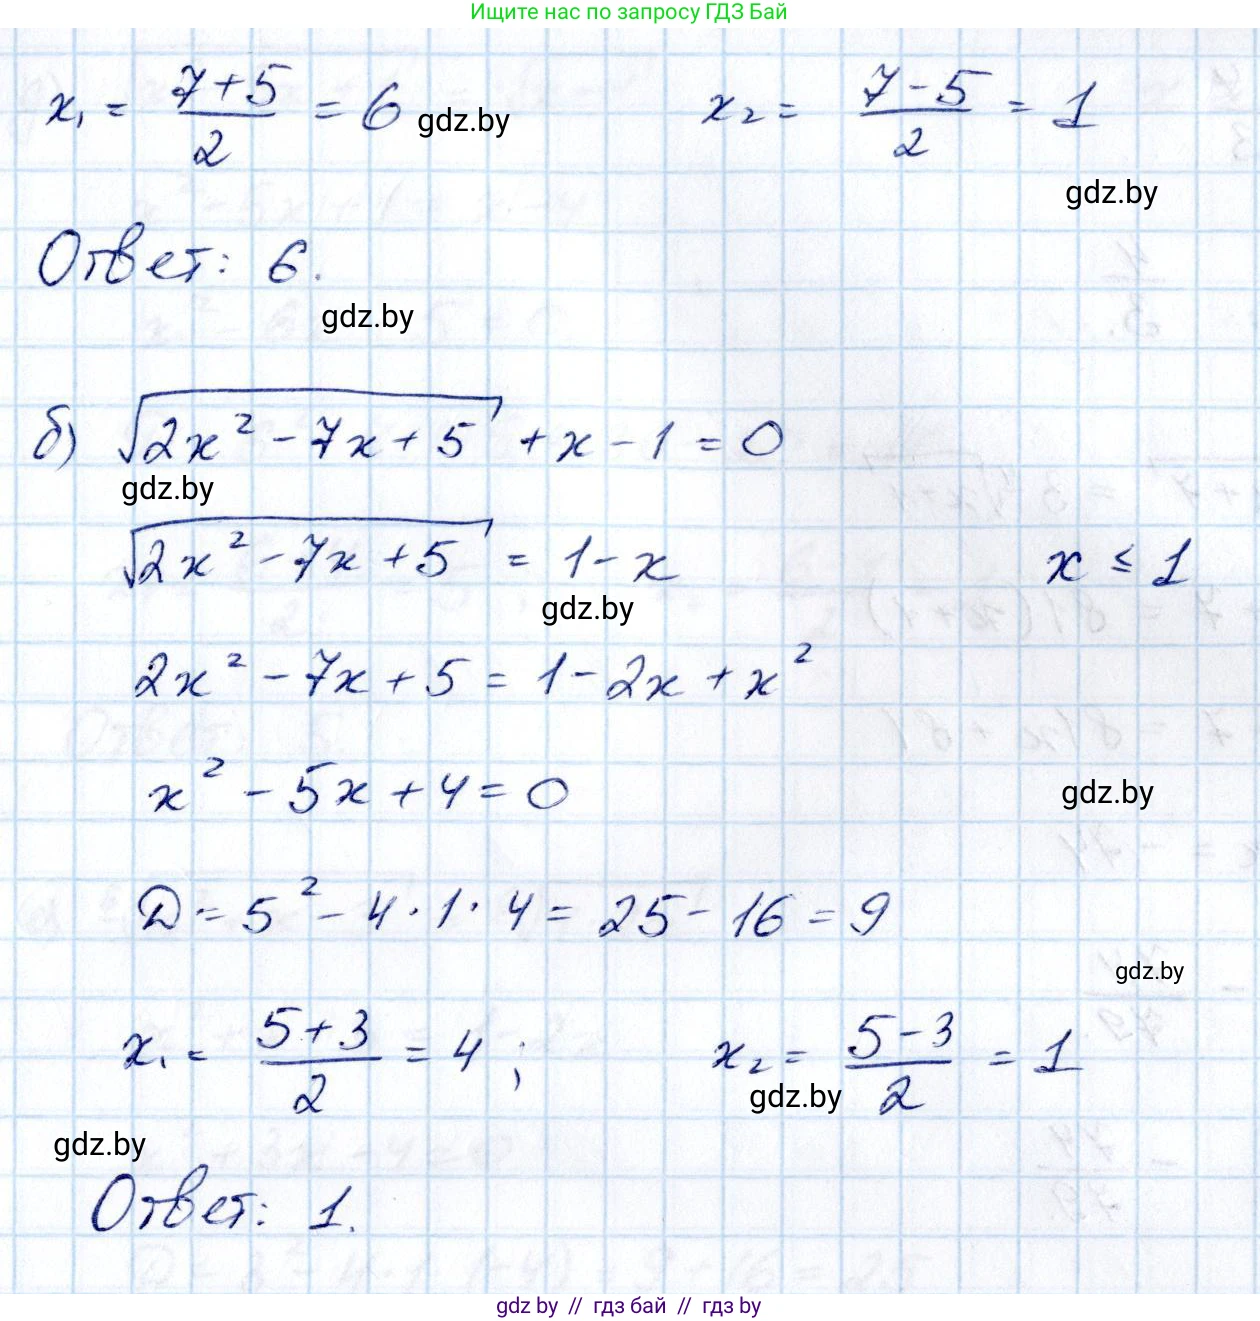 Ищите нас по запросу ГДЗ Бай
x₁ = (7+5)/2 = 6 gdz.by x₂ = (7-5)/2 = 1
gdz.by
Ответ: 6.
gdz.by
б) √(2x² - 7x + 5) + x - 1 = 0
gdz.by
√(2x² - 7x + 5) = 1 - x x ≤ 1
gdz.by
2x² - 7x + 5 = 1 - 2x + x²
x² - 5x + 4 = 0
gdz.by
D = 5² - 4 · 1 · 4 = 25 - 16 = 9
gdz.by
x₁ = (5+3)/2 = 4 ; x₂ = (5-3)/2 = 1
gdz.by
gdz.by
Ответ: 1.
gdz by // гдз бай // гдз by